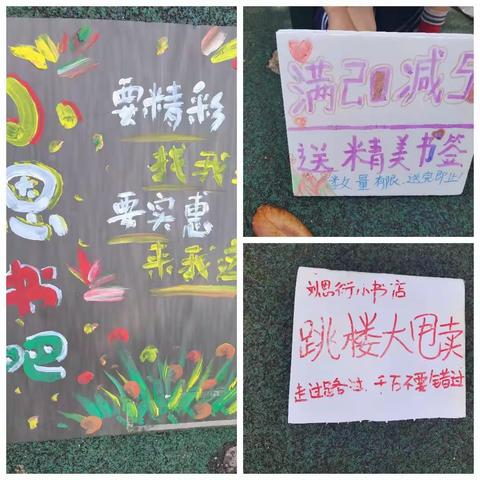 思书吧
要精彩
找我
要实惠
来我这
满20减5
送精美书签
数量有限、送完即止!
刘思行小书店
跳楼大甩卖
走过路过、千万不要错过